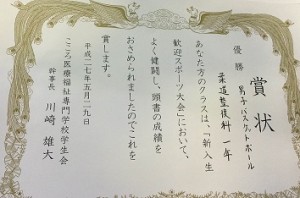 賞状
優勝
男子バスケットボール
柔道整復科 一年
あなた方のクラスは、「新入生
歓迎スポーツ大会」において、
よく健闘し、頭書の成績を
おさめられましたのでこれを
賞します。
平成二七年五月二九日
こころ医療福祉専門学校学生会
幹事長 川崎 雄大